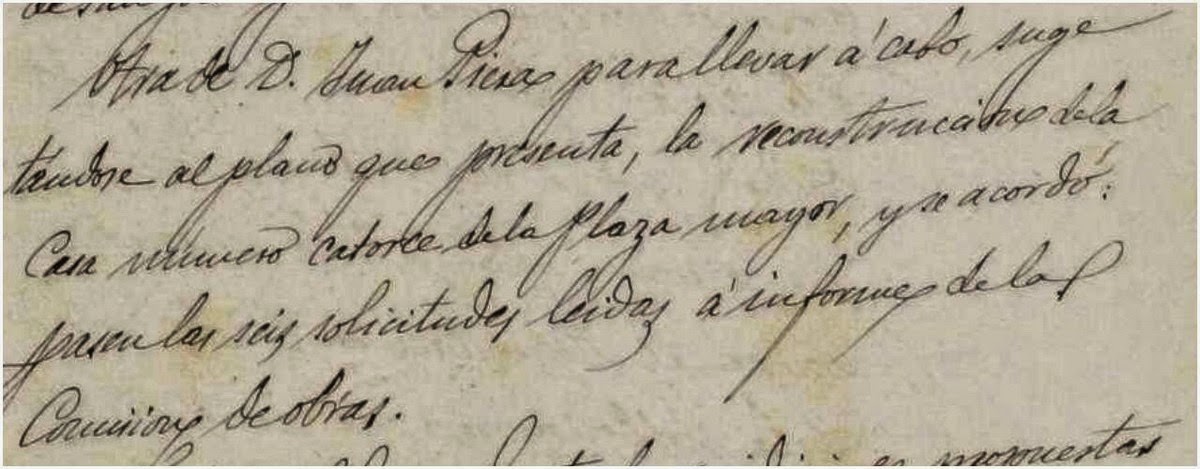 Otra de D. Juan Piera para llevar á cabo, suge
tándose al plano que presenta, la reconstruccion de la
Casa número catorce de la Plaza mayor, y se acordó:
pasen las seis solicitudes leidas á informe de la
Comision de obras.
propuestas